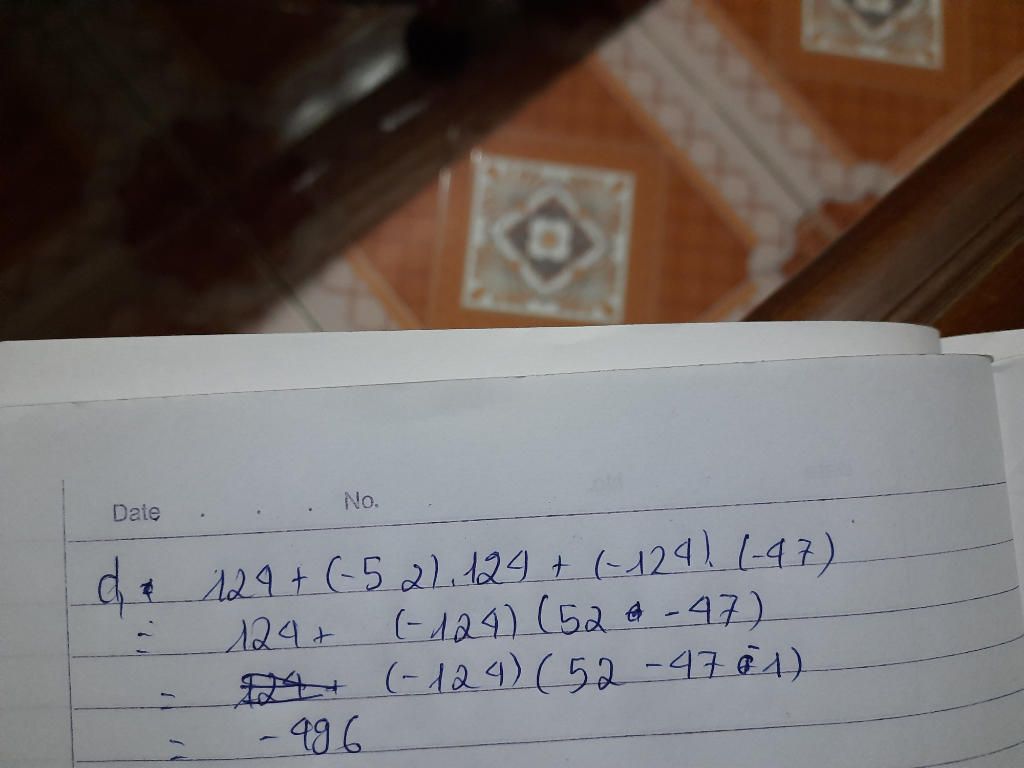 Date . . . No.
d, 124 + (-52).124 + (-124).(-47)
= 124 + (-124)(52 -47)
= (-124)(52 -47 -1)
= -496